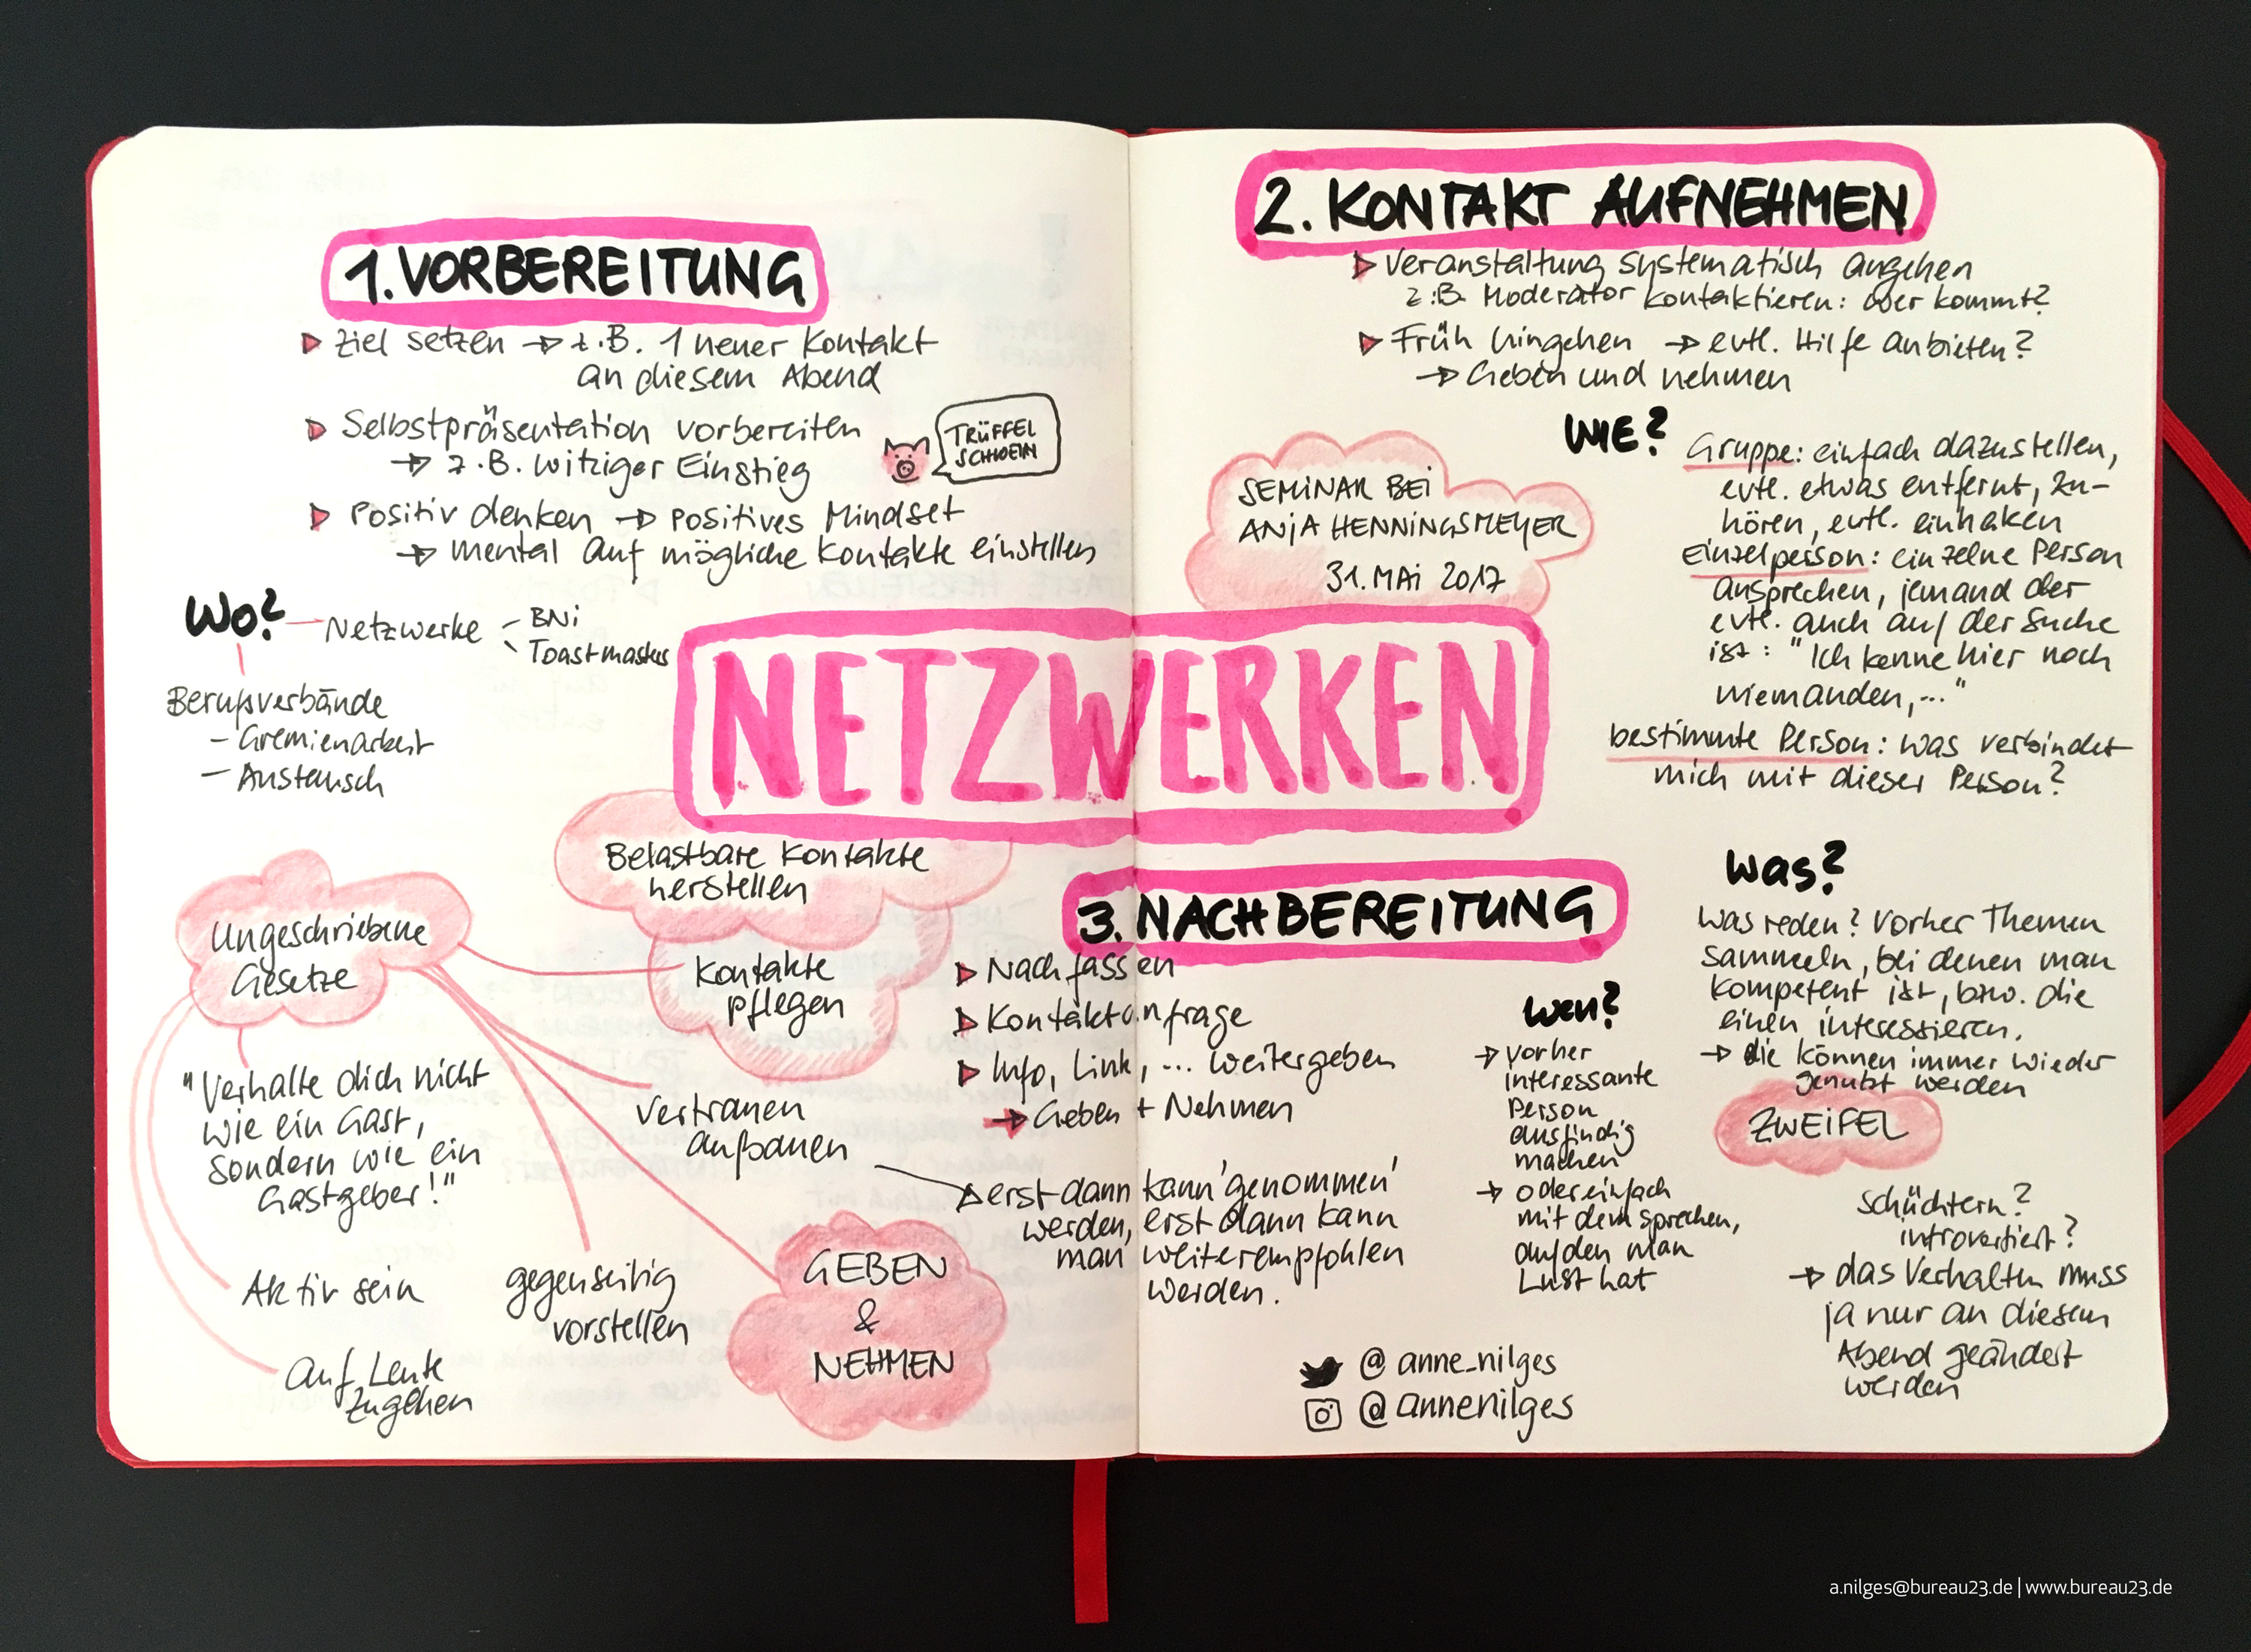 1. VORBEREITUNG
Ziel setzen → z.B. 1 neuer Kontakt
an diesem Abend
Selbstpräsentation vorbereiten
→ z.B. witziger Einstieg
TRÜFFEL
SCHWEIN
Positiv denken → positives Mindset
→ mental auf mögliche Kontakte einstellen
Wo?
Netzwerke
BNi
Toastmasters
Berufsverbände
- Gremienarbeit
- Austausch
NETZWERKEN
Belastbare Kontakte
herstellen
Kontakte
pflegen
Ungeschriebene
Gesetze
"Verhalte dich nicht
wie ein Gast,
sondern wie ein
Gastgeber!"
Aktiv sein
Auf Leute
zugehen
gegenseitig
vorstellen
Vertrauen
aufbauen
GEBEN
&
NEHMEN
2. KONTAKT AUFNEHMEN
Veranstaltung systematisch angehen
z.B. Moderator kontaktieren: wer kommt?
Früh hingehen → evtl. Hilfe anbieten?
→ Geben und nehmen
SEMINAR BEI
ANJA HENNINGSMEYER
31. MAI 2017
WIE?
Gruppe: einfach dazustellen,
evtl. etwas entfernt, zu-
hören, evtl. einhaken
Einzelperson: einzelne Person
ansprechen, jemand der
evtl. auch auf der Suche
ist: "Ich kenne hier noch
niemanden,..."
bestimmte Person: was verbindet
mich mit dieser Person?
Was?
Was reden? Vorher Themen
sammeln, bei denen man
kompetent ist, bzw. die
einen interessieren.
→ die können immer wieder
genutzt werden
ZWEIFEL
Schüchtern?
introvertiert?
→ das Verhalten muss
ja nur an diesem
Abend geändert
werden
3. NACHBEREITUNG
Nachfassen
Kontaktanfrage
Info, Link, ... weitergeben
→ Geben + Nehmen
erst dann kann 'genommen'
werden, erst dann kann
man weiterempfohlen
werden.
Wen?
→ vorher
interessante
Person
ausfindig
machen
→ oder einfach
mit dem sprechen,
auf den man
Lust hat
@anne_nilges
@annenilges
a.nilges@bureau23.de | www.bureau23.de